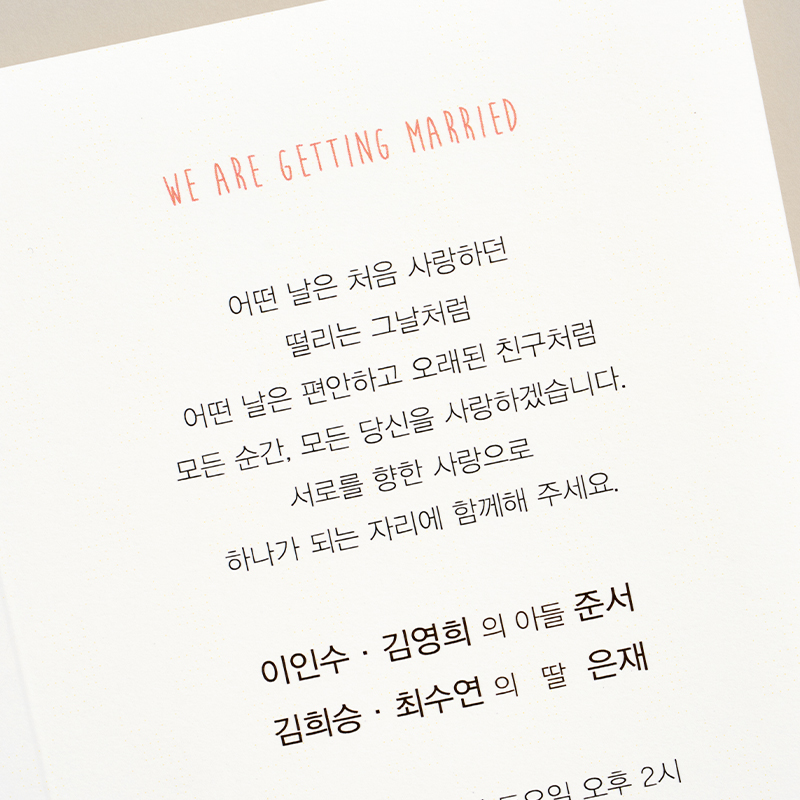 WE ARE GETTING MARRIED
어떤 날은 처음 사랑하던
떨리는 그날처럼
어떤 날은 편안하고 오래된 친구처럼
모든 순간, 모든 당신을 사랑하겠습니다.
서로를 향한 사랑으로
하나가 되는 자리에 함께해 주세요.
이인수 · 김영희 의 아들 준서
김희승 · 최수연 의 딸 은재
토요일 오후 2시